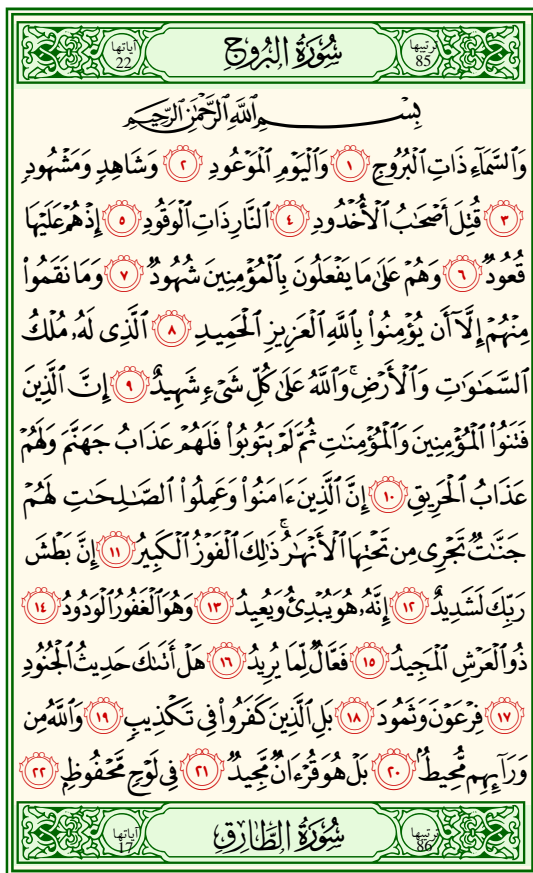 ترتيبها 85 سُورَةُ البُرُوجِ آياتها 22
بِسْمِ ٱللَّهِ ٱلرَّحْمَٰنِ ٱلرَّحِيمِ
وَٱلسَّمَآءِ ذَاتِ ٱلْبُرُوجِ ١ وَٱلْيَوْمِ ٱلْمَوْعُودِ ٢ وَشَاهِدٍ وَمَشْهُودٍ
٣ قُتِلَ أَصْحَٰبُ ٱلْأُخْدُودِ ٤ ٱلنَّارِ ذَاتِ ٱلْوَقُودِ ٥ إِذْ هُمْ عَلَيْهَا
قُعُودٌ ٦ وَهُمْ عَلَىٰ مَا يَفْعَلُونَ بِٱلْمُؤْمِنِينَ شُهُودٌ ٧ وَمَا نَقَمُوا۟
مِنْهُمْ إِلَّآ أَن يُؤْمِنُوا۟ بِٱللَّهِ ٱلْعَزِيزِ ٱلْحَمِيدِ ٨ ٱلَّذِى لَهُۥ مُلْكُ
ٱلسَّمَٰوَٰتِ وَٱلْأَرْضِ ۚ وَٱللَّهُ عَلَىٰ كُلِّ شَىْءٍ شَهِيدٌ ٩ إِنَّ ٱلَّذِينَ
فَتَنُوا۟ ٱلْمُؤْمِنِينَ وَٱلْمُؤْمِنَٰتِ ثُمَّ لَمْ يَتُوبُوا۟ فَلَهُمْ عَذَابُ جَهَنَّمَ وَلَهُمْ
عَذَابُ ٱلْحَرِيقِ ١٠ إِنَّ ٱلَّذِينَ ءَامَنُوا۟ وَعَمِلُوا۟ ٱلصَّٰلِحَٰتِ لَهُمْ
جَنَّٰتٌ تَجْرِى مِن تَحْتِهَا ٱلْأَنْهَٰرُ ۚ ذَٰلِكَ ٱلْفَوْزُ ٱلْكَبِيرُ ١١ إِنَّ بَطْشَ
رَبِّكَ لَشَدِيدٌ ١٢ إِنَّهُۥ هُوَ يُبْدِئُ وَيُعِيدُ ١٣ وَهُوَ ٱلْغَفُورُ ٱلْوَدُودُ ١٤
ذُو ٱلْعَرْشِ ٱلْمَجِيدُ ١٥ فَعَّالٌ لِّمَا يُرِيدُ ١٦ هَلْ أَتَىٰكَ حَدِيثُ ٱلْجُنُودِ
١٧ فِرْعَوْنَ وَثَمُودَ ١٨ بَلِ ٱلَّذِينَ كَفَرُوا۟ فِى تَكْذِيبٍ ١٩ وَٱللَّهُ مِن
وَرَآئِهِم مُّحِيطٌۢ ٢٠ بَلْ هُوَ قُرْءَانٌ مَّجِيدٌ ٢١ فِى لَوْحٍ مَّحْفُوظٍۭ ٢٢
ترتيبها 86 سُورَةُ الطَّارِقِ آياتها 17